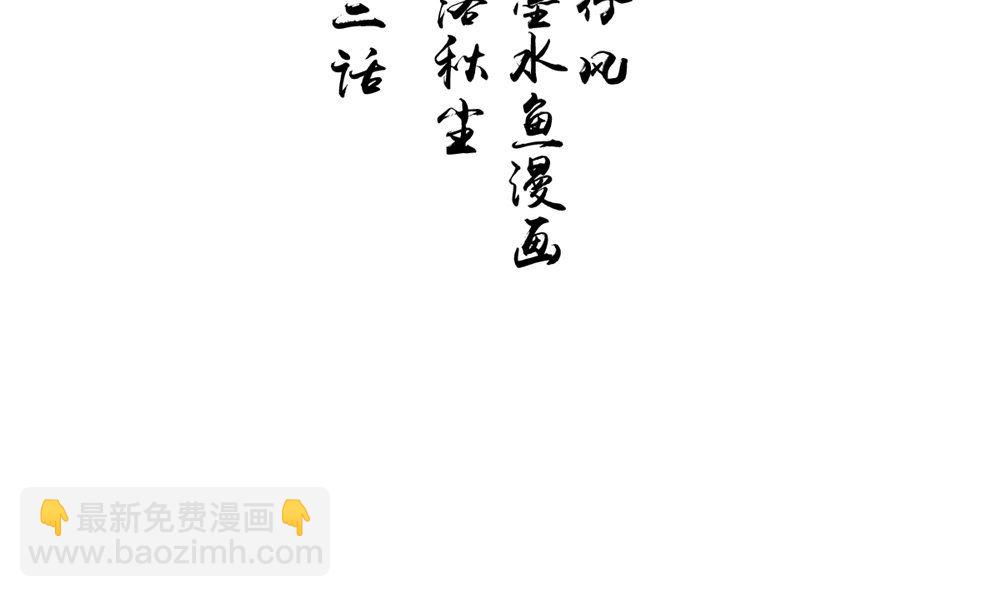 风
水鱼漫画
秋尘
三话
👇最新免费漫画👇
www.baozimh.com